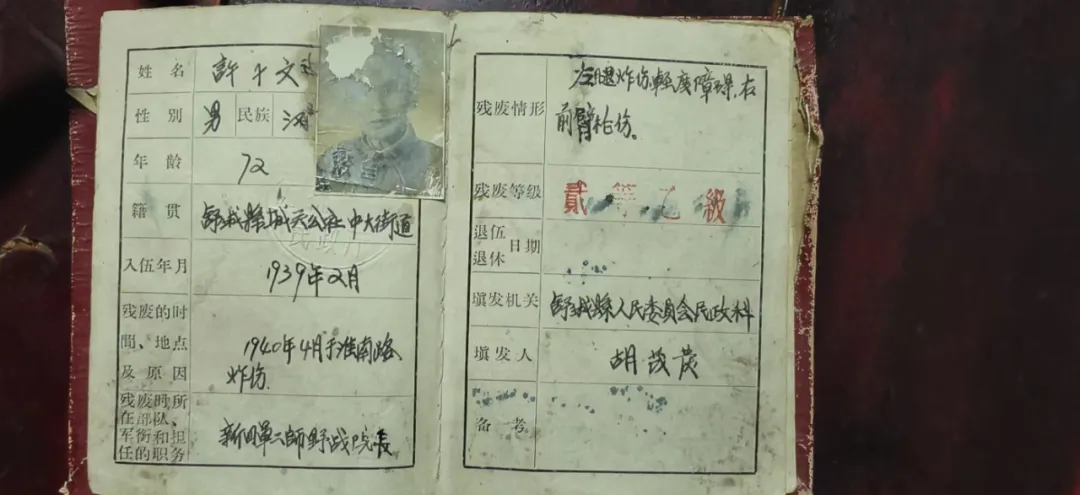 姓名
許千文
性别
男
民族
汉
年龄
72
籍贯
舒城縣城关公社中大街道
民政
入伍年月
1939年2月
残废的时
間、地点
及原因
1940年4月于淮南路
炸伤.
残废时所
在部队、
军衔和担
任的职务
新四軍二師野战院長
残废情形
左腿炸伤輕度障碍,右
前臂枪伤。
残废等级
貳等乙級
退伍
退休
日期
填发机关
舒城縣人民委員会民政科
填发人
胡茂
备考